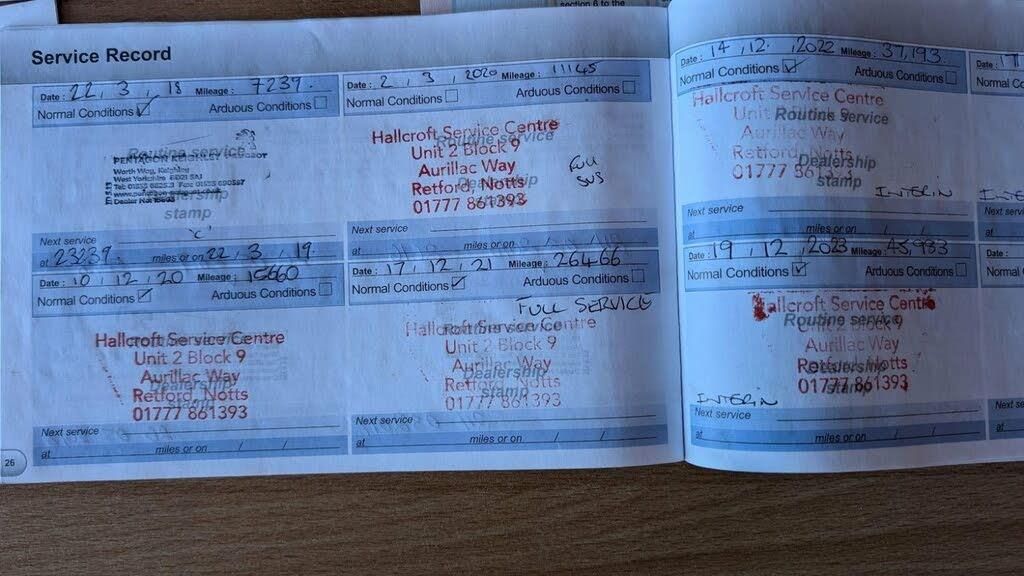 section 6 to the
Service Record
Date : 22, 3, 18 Mileage : 7239.
Normal Conditions ✓ Arduous Conditions
Routine service
PENTAGON KEIGHLEY PEUGEOT
Worth Way, Keighley
West Yorkshire
Dealership
stamp
"C"
Next service
at 23239. miles or on 22, 3, 19.
Date : 2, 3, 2020 Mileage : 11145
Normal Conditions Arduous Conditions
Hallcroft Service Centre
Routine service
Unit 2 Block 9
Aurillac Way
Dealership
Retford, Notts
stamp
01777 861393
Full
Next service
at miles or on / /
Date : 10, 12, 20 Mileage : 15660
Normal Conditions ✓ Arduous Conditions
Hallcroft Service Centre
Routine service
Unit 2 Block 9
Aurillac Way
Dealership
Retford, Notts
stamp
01777 861393
Next service
at miles or on / /
Date : 17, 12, 21 Mileage : 26466
Normal Conditions ✓ Arduous Conditions
FULL SERVICE
Hallcroft Service Centre
Routine service
Unit 2 Block 9
Aurillac Way
Dealership
Retford, Notts
stamp
01777 861393
Next service
at miles or on / /
26
Date : 14, 12, 2022 Mileage : 37,193
Normal Conditions ✓ Arduous Conditions
Hallcroft Service Centre
Routine service
Unit 2 Block 9
Aurillac Way
Retford, Notts
Dealership
01777 861393
stamp
INTERIN
Next service
at miles or on / /
Date : 19, 12, 2023 Mileage : 45,983
Normal Conditions ✓ Arduous Conditions
Hallcroft Service Centre
Routine service
Unit 2 Block 9
Aurillac Way
Retford, Notts
Dealership
01777 861393
stamp
INTERIN
Next service
at miles or on / /
Date :
Normal Co
INTE
Next serv
at
Date :
Normal Co
Next se
at